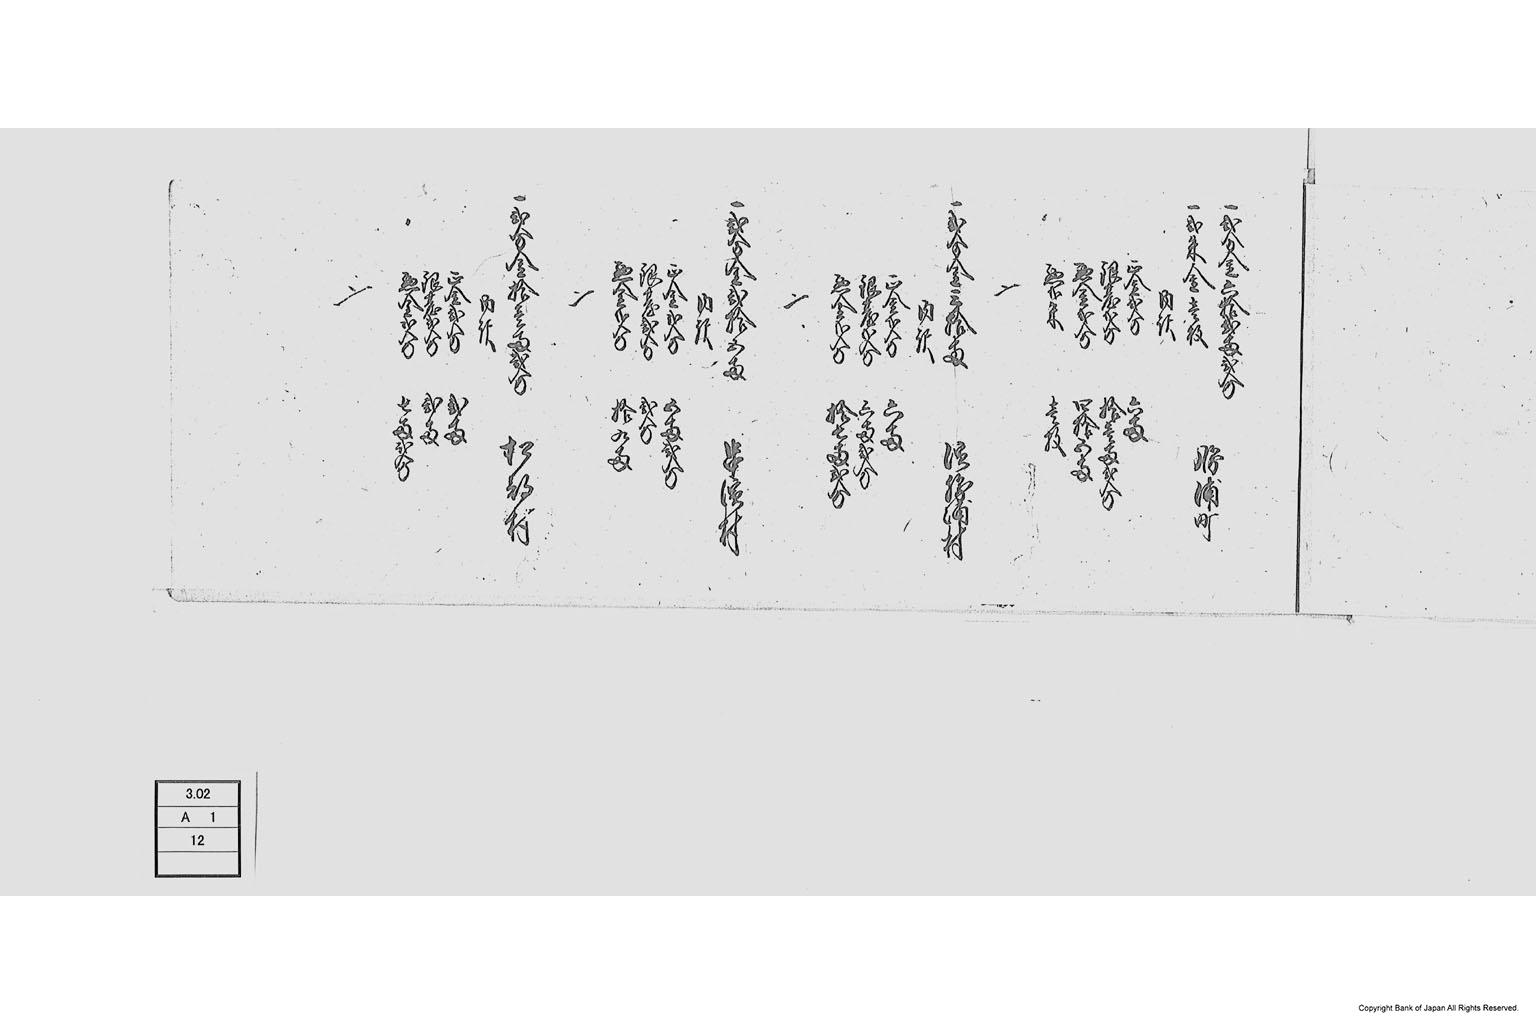 一弐分金六拾弐両弐分
一弐朱金壱枚
勝浦町
内訳
正金弐分 六両
銀台弐分 拾壱両弐分
悪金弐分 四拾五両
悪弐朱 壱枚
〆
一弐分金三拾両
浜勝浦村
内訳
正金弐分 六両
銀台弐分 六両弐分
悪金弐分 拾七両弐分
〆
一弐分金弐拾五両
串浜村
内訳
正金弐分 五両弐分
銀台弐分 弐分
悪金弐分 拾九両
〆
一弐分金拾壱両弐分
松部村
内訳
正金弐分 弐両
銀台弐分 弐両
悪金弐分 七両弐分
〆
3.02
A 1
12
Copyright Bank of Japan All Rights Reserved.